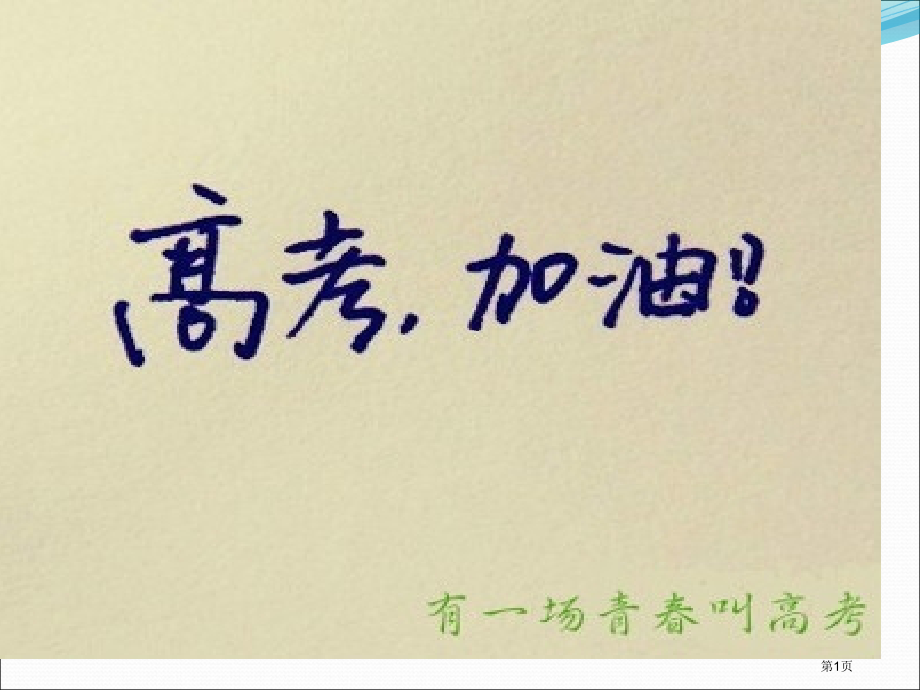 高考,加油!!
有一场青春叫高考
第1页